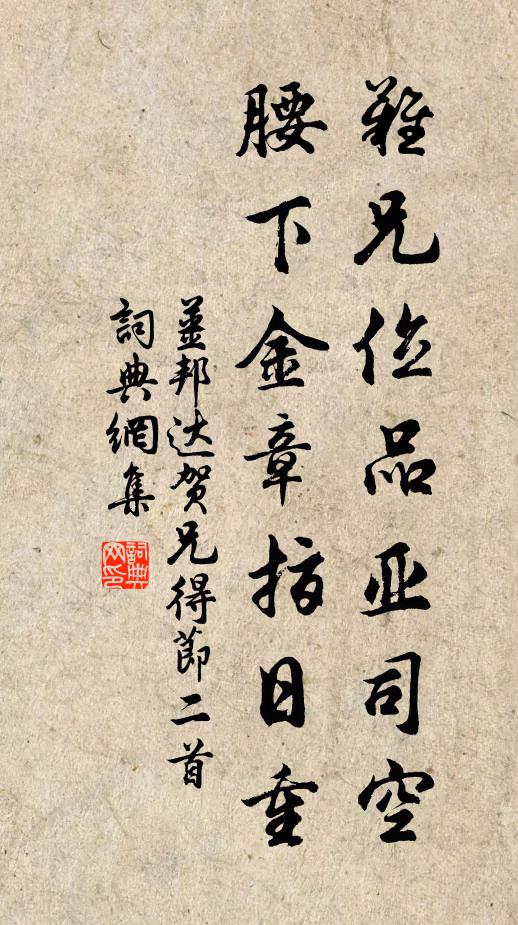 難兄位品亚司空
腰下金章指日重
薑邦达贺兄得節二首
詞典網集
詞典网印